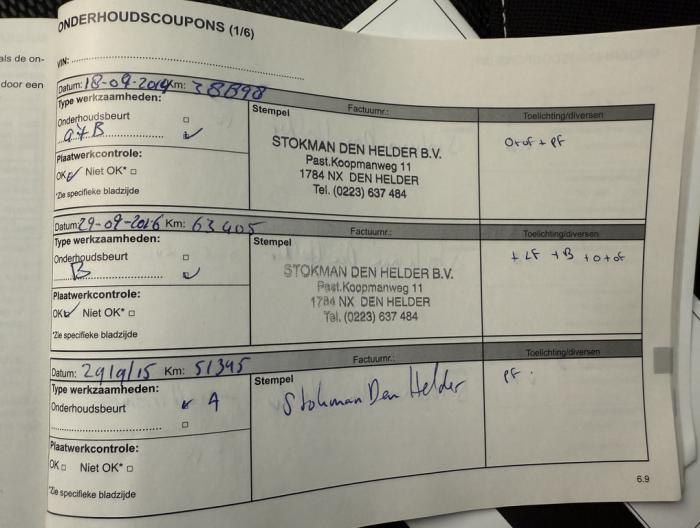 ONDERHOUDSCOUPONS (1/6)
als de on-
door een
VIN:
Datum: 18-09-2014 Km: 38898
Type werkzaamheden:
Onderhoudsbeurt
a+B
Plaatwerkcontrole:
OK Niet OK*
*Zie specifieke bladzijde
Stempel
Factuurnr.:
STOKMAN DEN HELDER B.V.
Past.Koopmanweg 11
1784 NX DEN HELDER
Tel. (0223) 637 484
Toelichting/diversen
O+of + PF
Datum: 29-09-2016 Km: 63405
Type werkzaamheden:
Onderhoudsbeurt
B
Plaatwerkcontrole:
OK Niet OK*
*Zie specifieke bladzijde
Stempel
Factuurnr.:
STOKMAN DEN HELDER B.V.
Past.Koopmanweg 11
1784 NX DEN HELDER
Tel. (0223) 637 484
Toelichting/diversen
+ LF + B + O + of
Datum: 29/9/15 Km: 51345
Type werkzaamheden:
Onderhoudsbeurt A
Plaatwerkcontrole:
OK Niet OK*
*Zie specifieke bladzijde
Stempel
Factuurnr.:
Stokman Den Helder
Toelichting/diversen
PF.
6.9